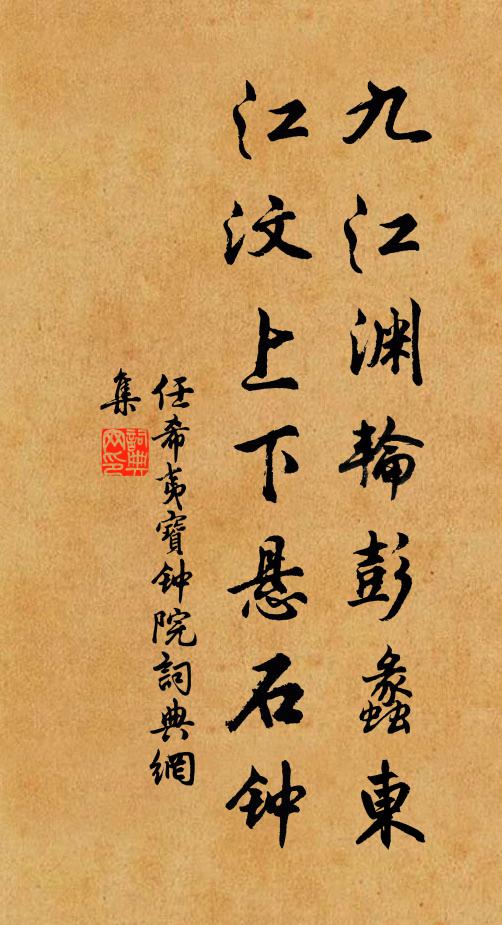 九江渊輪彭蠡東
江汶上下悬石钟
任希夷寶钟院詞典網
集
詞典網印